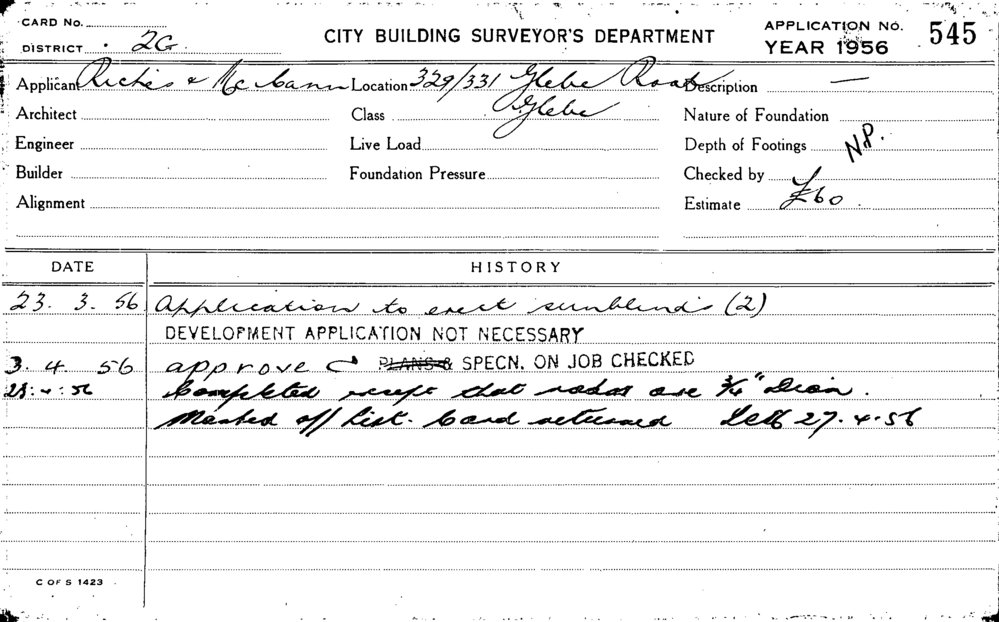 CARD No.
DISTRICT 2G.
CITY BUILDING SURVEYOR'S DEPARTMENT
APPLICATION No. 545
YEAR 1956
Applicant & McCann Location 329/331 Glebe Road Description —
Architect Class Glebe Nature of Foundation
Engineer Live Load Depth of Footings N.P.
Builder Foundation Pressure Checked by
Alignment Estimate £60
DATE HISTORY
23. 3. 56 Application to erect sunblinds (2)
DEVELOPMENT APPLICATION NOT NECESSARY
3. 4. 56 approved PLANS & SPECN. ON JOB CHECKED
Completed except that are 3/4"
Marked off List. Card returned 27.4.56
C OF S 1423